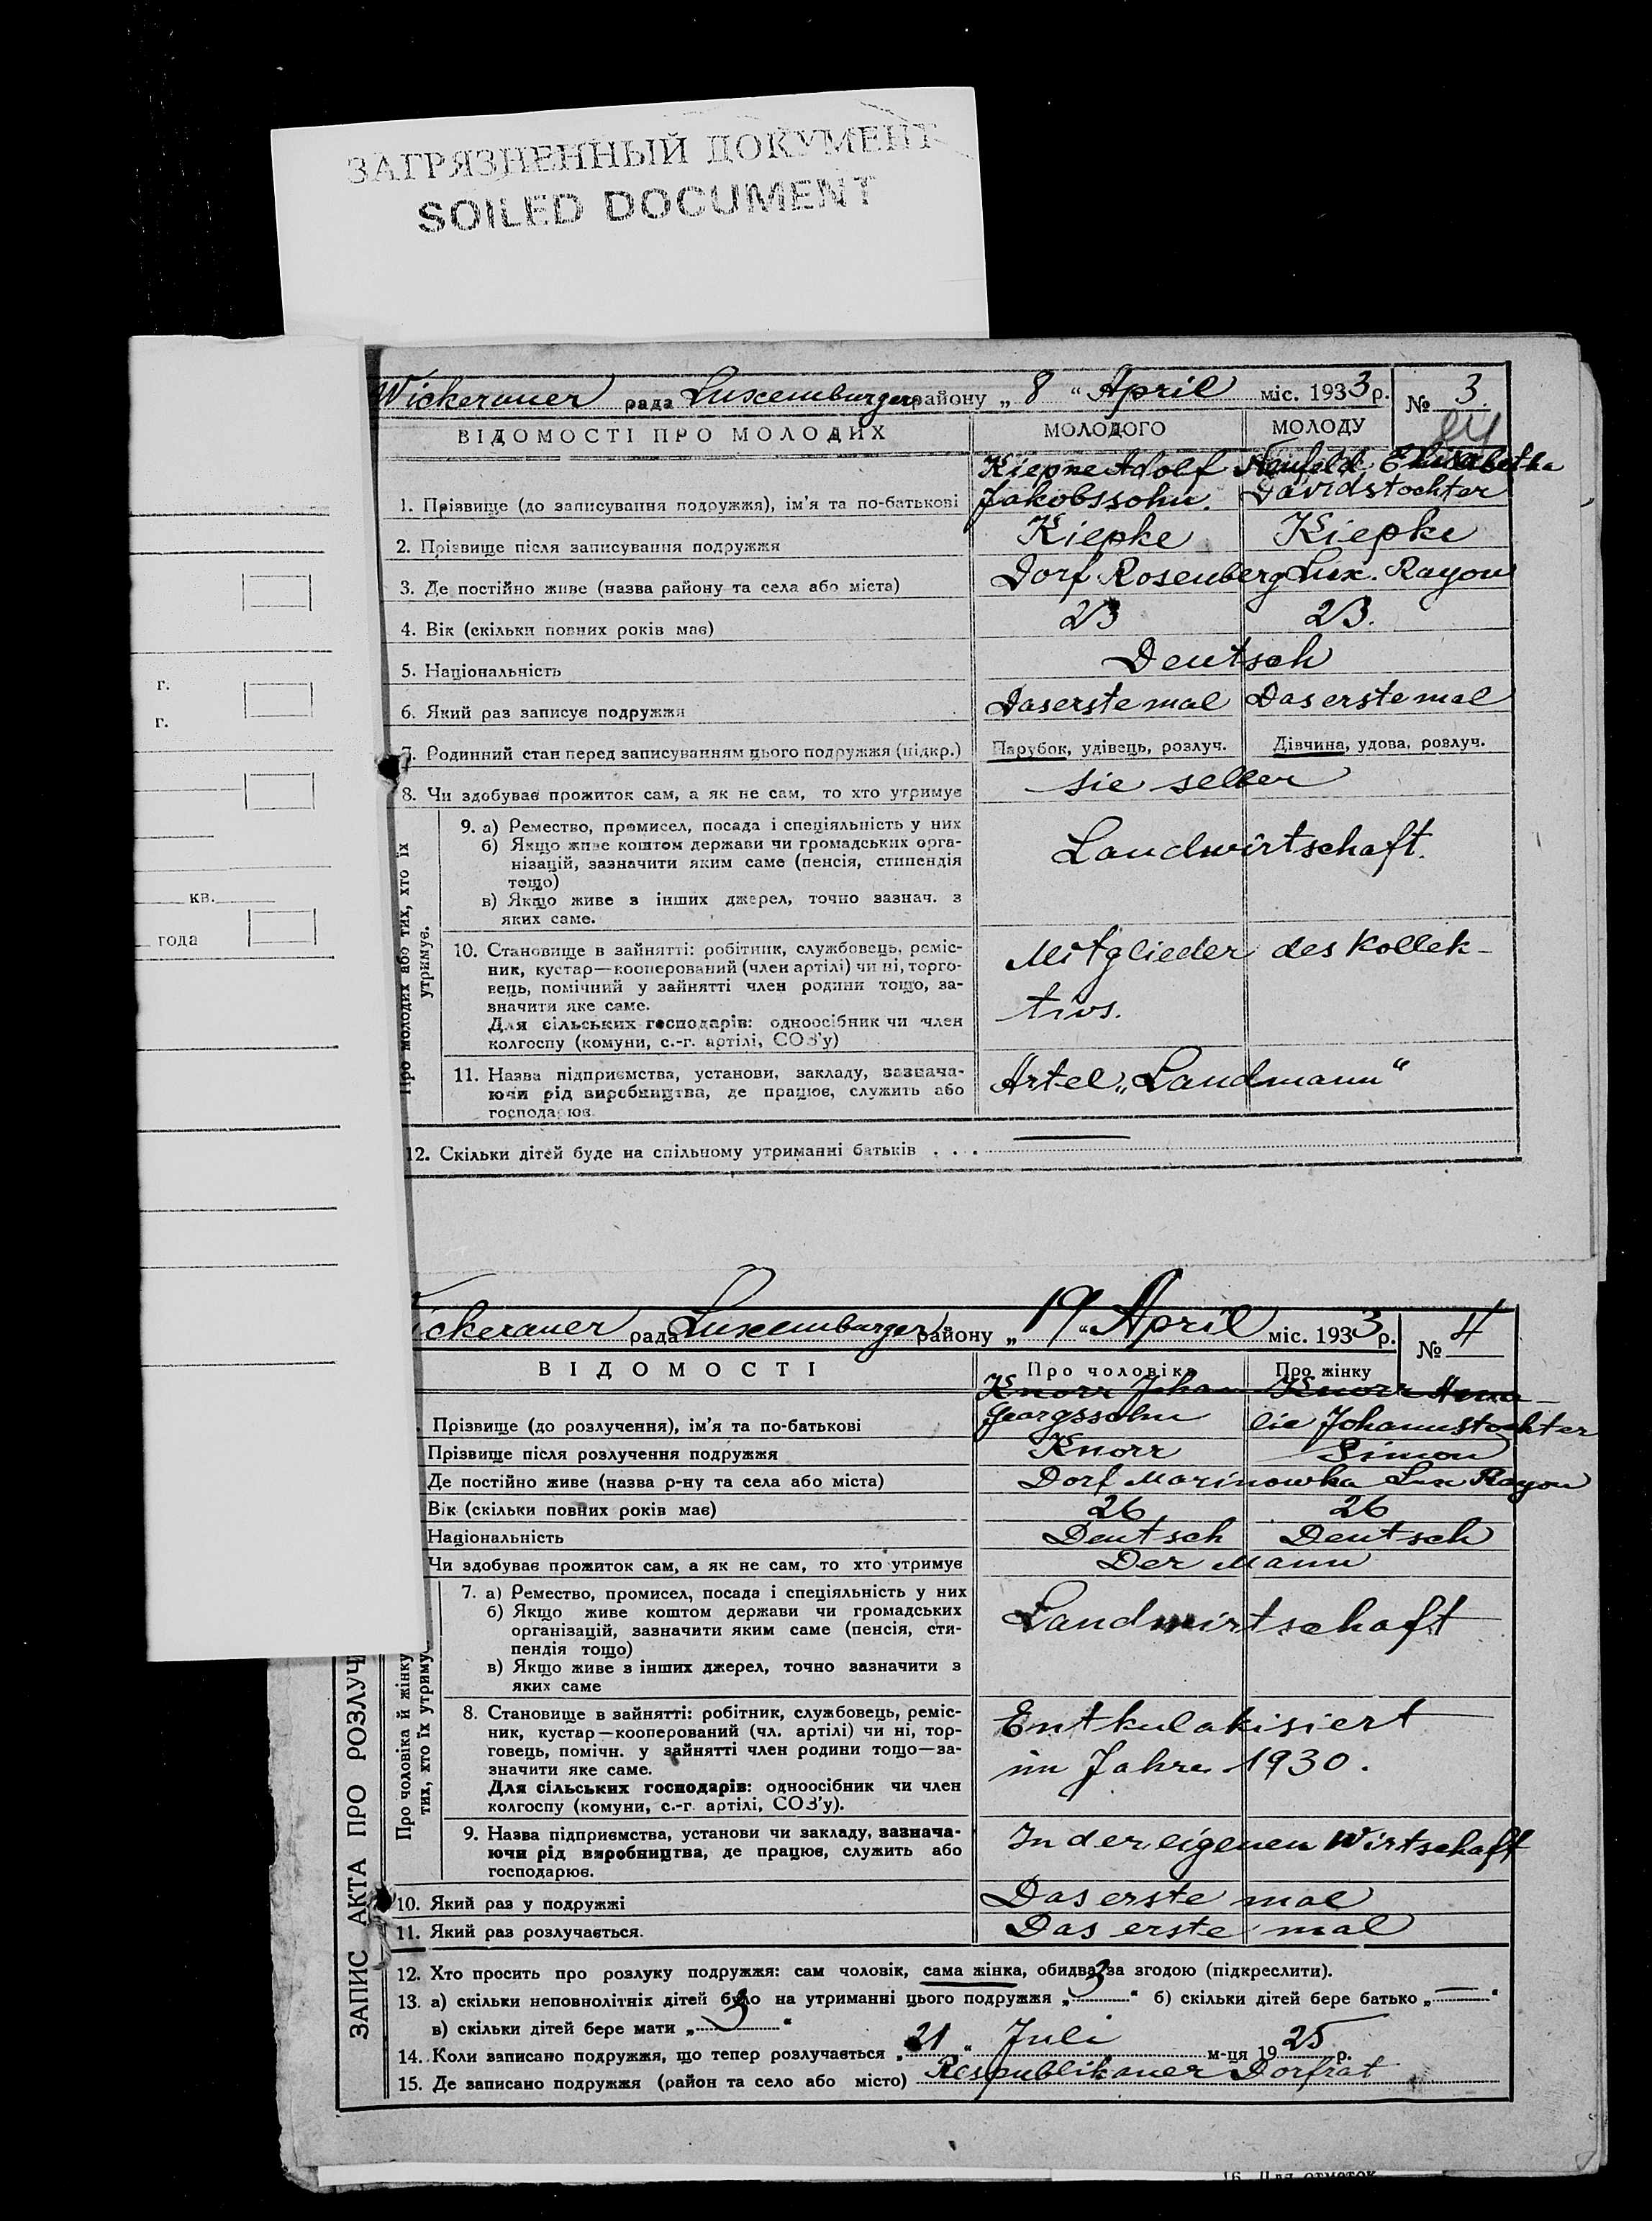 ЗАГРЯЗНЕННЫЙ ДОКУМЕНТ
SOILED DOCUMENT
г.
г.
кв.
года
Wickerauer рада Luxemburger району „ 8 “ April міс. 1933 р. № 3.
ВІДОМОСТІ ПРО МОЛОДИХ МОЛОДОГО МОЛОДУ
Kiepke Adolf Neufeld Elisabetha
1. Прізвище (до записування подружжя), ім'я та по-батькові Jakobssohn. Davidstochter
2. Прізвище після записування подружжя Kiepke Kiepke
3. Де постійно живе (назва району та села або міста) Dorf Rosenberg Lux. Rayon
4. Вік (скільки повних років має) 23 23.
5. Національність Deutsch
6. Який раз записує подружжя Das erste mal Das erste mal
7. Родинний стан перед записуванням цього подружжя (підкр.) Парубок, удівець, розлуч. Дівчина, удова, розлуч.
8. Чи здобуває прожиток сам, а як не сам, то хто утримує sie selber
Про молодих або тих, хто їх утримує.
9. а) Ремество, промисел, посада і спеціяльність у них
б) Якщо живе коштом держави чи громадських орга-
нізацій, зазначити яким саме (пенсія, стипендія
тощо)
Landwirtschaft.
в) Якщо живе з інших джерел, точно зазнач. з
яких саме.
10. Становище в зайнятті: робітник, службовець, реміс-
ник, кустар—кооперований (член артілі) чи ні, торго-
вець, помічний у зайнятті член родини тощо, за-
значити яке саме.
Для сільських господарів: одноосібник чи член
колгоспу (комуни, с.-г. артілі, СОЗ'у)
Mitglieder des Kollek-
tivs.
11. Назва підприємства, установи, закладу, зазнача-
ючи рід виробництва, де працює, служить або
господарює
Artel „Landmann“
12. Скільки дітей буде на спільному утриманні батьків . . . —
ickerauer рада Luxemburger району „ 19 “ April міс. 1933 р. № 4
ВІДОМОСТІ Про чоловіка Про жінку
Knorr Johan Knorr Ama-
Прізвище (до розлучення), ім'я та по-батькові Georgssohn lie Johannstochter
Прізвище після розлучення подружжя Knorr Simon
Де постійно живе (назва р-ну та села або міста) Dorf Marinowka Lux Rayon
Вік (скільки повних років має) 26 26
Національність Deutsch Deutsch
Чи здобуває прожиток сам, а як не сам, то хто утримує Der Mann
ЗАПИС АКТА ПРО РОЗЛУЧ
Про чоловіка й жінку
тих, хто їх утриму
7. а) Ремество, промисел, посада і спеціяльність у них
б) Якщо живе коштом держави чи громадських
організацій, зазначити яким саме (пенсія, сти-
пендія тощо)
Landwirtschaft
в) Якщо живе з інших джерел, точно зазначити з
яких саме
8. Становище в зайнятті: робітник, службовець, реміс-
ник, кустар—кооперований (чл. артілі) чи ні, тор-
говець, помічн. у зайнятті член родини тощо—за-
значити яке саме.
Для сільських господарів: одноосібник чи член
колгоспу (комуни, с.-г. артілі, СОЗ'у).
Entkulakisiert
im Jahre 1930.
9. Назва підприємства, установи чи закладу, зазнача-
ючи рід виробництва, де працює, служить або
господарює.
In der eigenen Wirtschaft
10. Який раз у подружжі Das erste mal
11. Який раз розлучається. Das erste mal
12. Хто просить про розлуку подружжя: сам чоловік, сама жінка, обидва за згодою (підкреслити).
13. а) скільки неповнолітніх дітей було на утриманні цього подружжя „ 3 “ б) скільки дітей бере батько „ — “
в) скільки дітей бере мати „ 3 “
14. Коли записано подружжя, що тепер розлучається „ 21 “ Juli м-ця 1925 р.
15. Де записано подружжя (район та село або місто) Respublikaner Dorfrat
16. Для отметок